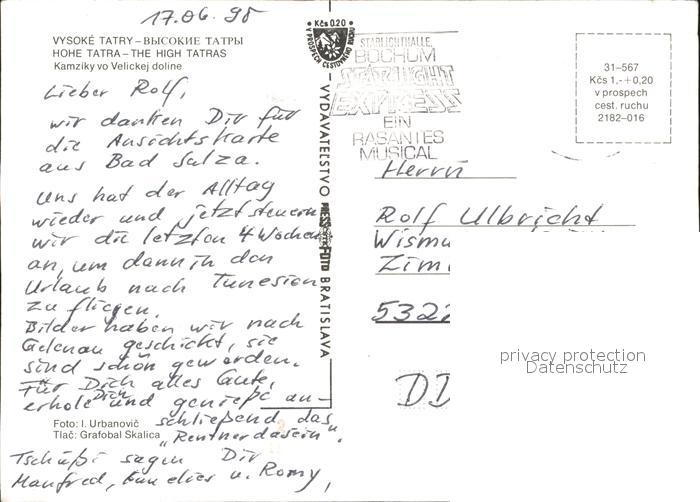 17.06.95
VYSOKÉ TATRY – ВЫСОКИЕ ТАТРЫ
HOHE TATRA – THE HIGH TATRAS
Kamzíky vo Velickej doline
Lieber Rolf,
wir danken Dir für
die Ansichtskarte
aus Bad Sulza.
Uns hat der Alltag
wieder und jetzt steuern
wir die letzten 4 Wochen
an, um dann in den
Urlaub nach Tunesien
zu fliegen.
Bilder haben wir nach
Gelenau geschickt, sie
sind schön geworden.
Für Dich alles Gute,
erhole Dich und genieße an-
schließend das
"Rentnerdasein".
Tschüßi sagen Dir
Manfred, u. Romy,
Foto: I. Urbanovič
Tlač: Grafobal Skalica
Kčs 0.20
V PROSPECH CESTOVNÉHO RUCHU
VYDAVATEĽSTVO PRESSFOTO BRATISLAVA
STARLIGHTHALLE
BOCHUM
STARLIGHT
EXPRESS
EIN
RASANTES
MUSICAL
31–567
Kčs 1,-+0,20
v prospech
cest. ruchu
2182–016
Herrn
Rolf Ulbricht
Wismu
Zim
532
DD
privacy protection
Datenschutz